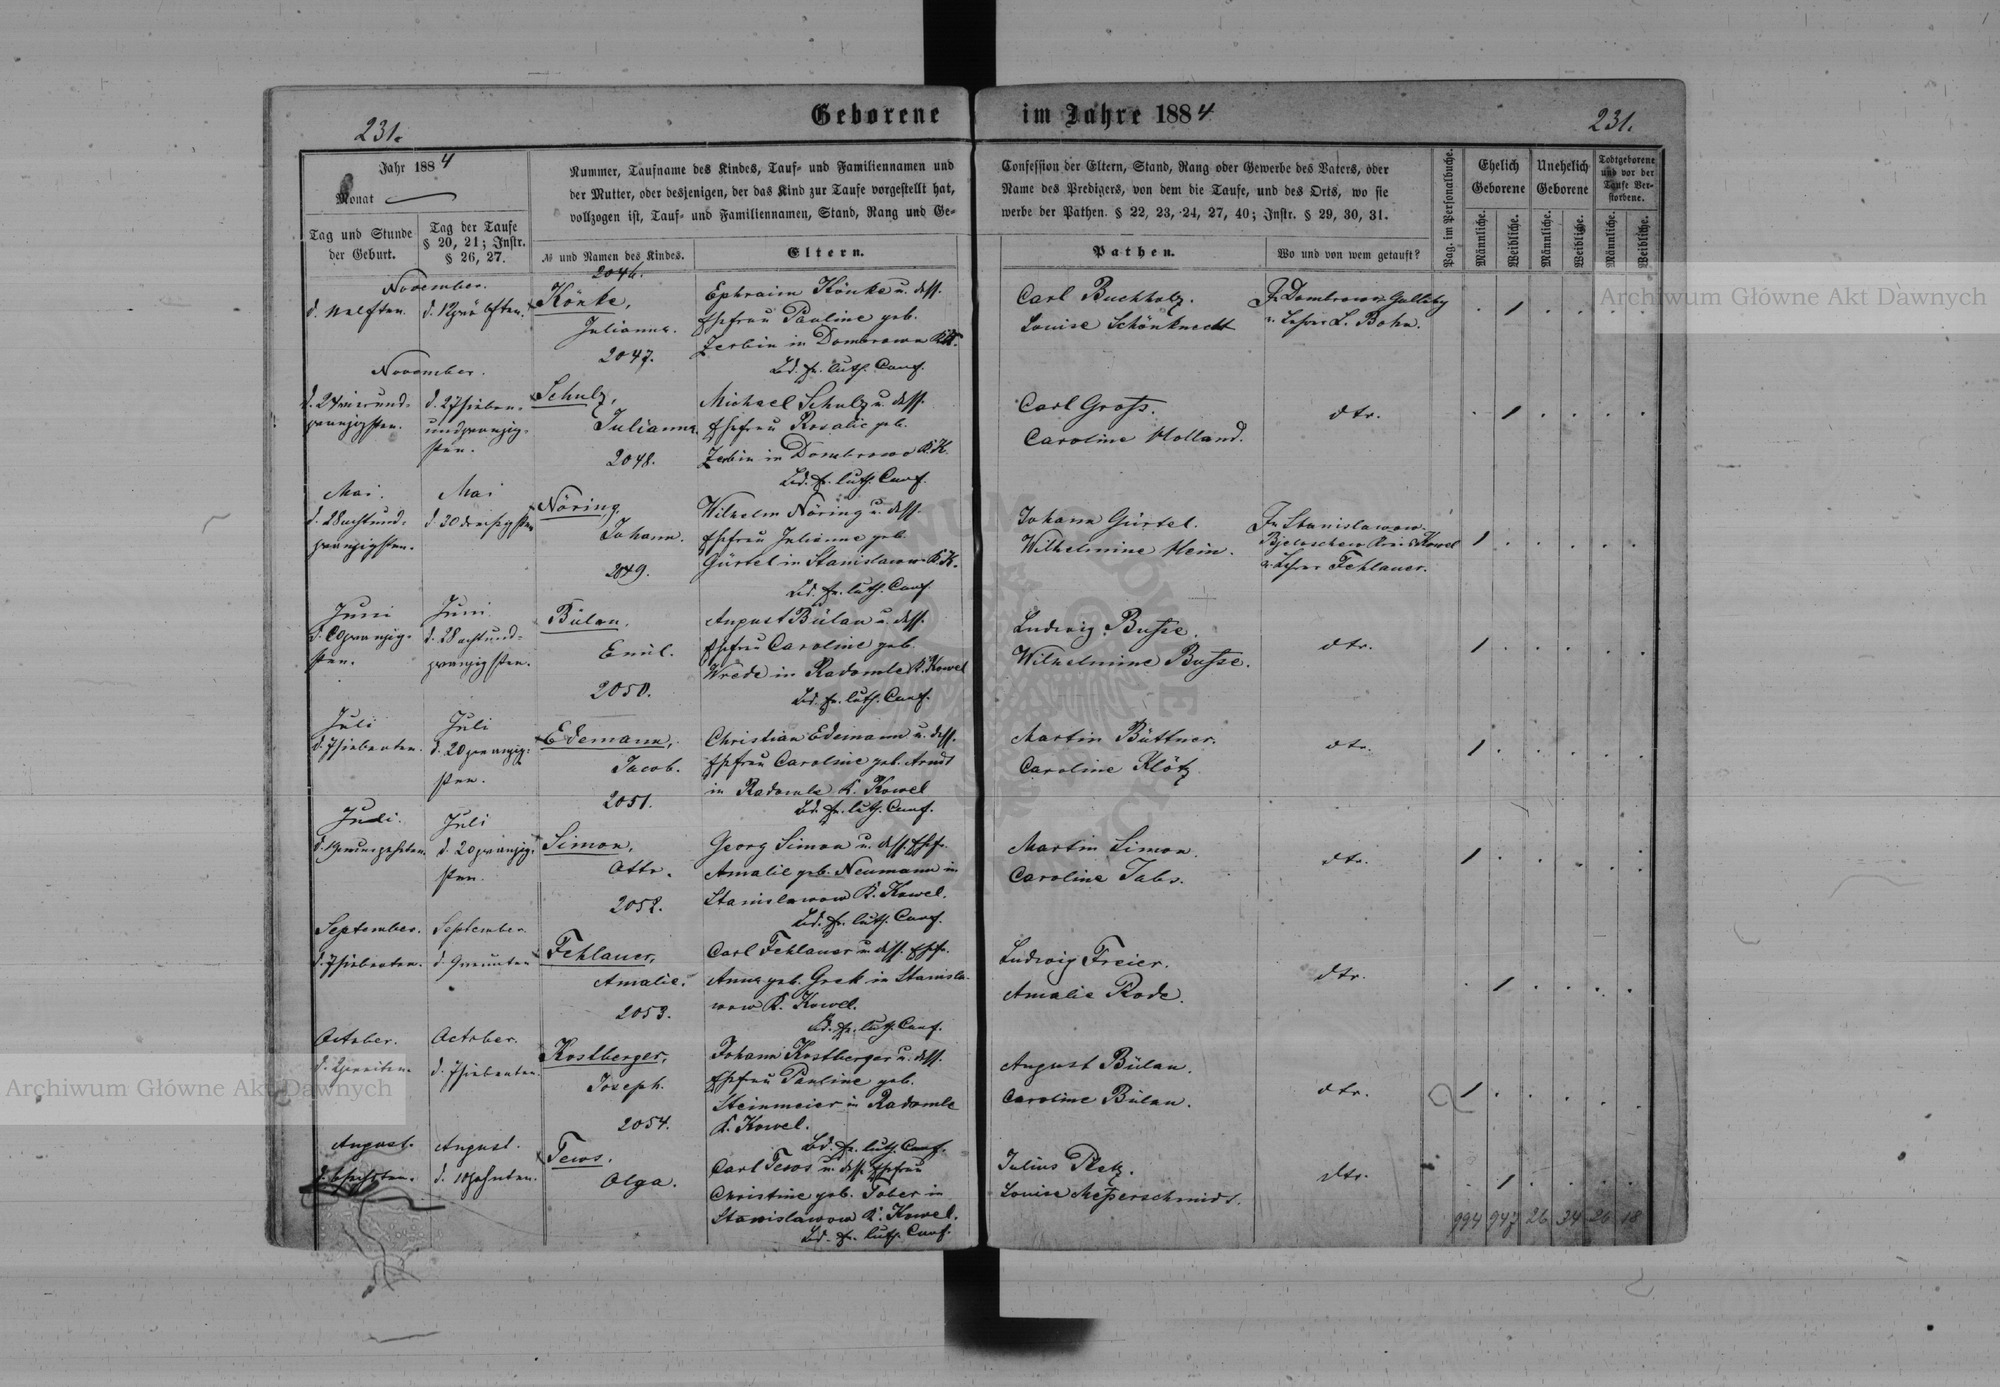 Geborene im Jahre 1884
231. 231.
Jahr 1884
Monat
Tag und Stunde der Geburt.
Tag der Taufe § 20, 21; Instr. § 26, 27.
Nummer, Taufname des Kindes, Tauf- und Familiennamen und
der Mutter, oder desjenigen, der das Kind zur Taufe vorgestellt hat,
vollzogen ist, Tauf- und Familiennamen, Stand, Rang und Ge-
№ und Namen des Kindes.
Eltern.
Confession der Eltern, Stand, Rang oder Gewerbe des Vaters, oder
Name des Predigers, von dem die Taufe, und des Orts, wo sie
werbe der Pathen. § 22, 23, 24, 27, 40; Instr. § 29, 30, 31.
Pathen.
Wo und von wem getauft?
Pag. im Personalbuche.
Ehelich Geborene
Unehelich Geborene
Todtgeborene und vor der Taufe Verstorbene.
Männliche. Weibliche. Männliche. Weibliche. Männliche. Weibliche.
November.
2046.
Könke,
Julianna.
Ephraim Könke u. dess.
Ehefrau Pauline geb.
Zerbin in Dombrowa K.K.
Bd. ev. luth. Conf.
Carl Buchholz.
Louise Schönknecht
u. Lehrer L. Bohn.
November.
d. 24 vierund-
zwanzigsten.
d. 27 sieben-
undzwanzig-
sten.
2047.
Schulz,
Julianna.
Michael Schulz u. dess.
Ehefrau Rosalie geb.
Zerbin in Dombrowo K.K.
Bd. ev. luth. Conf.
Carl Gross.
Caroline Holland.
dto.
Mai.
d. 28 achtund-
zwanzigsten.
Mai
d. 30 dreisigsten
2048.
Nöring,
Johann.
Wilhelm Nöring u. dess.
Ehefrau Julianne geb.
Gürtel in Stanislawow K.K.
Bd. ev. luth. Conf.
Johann Gürtel.
Wilhelmine Hein.
In Stanislawow
u. Lehrer Fehlauer.
Juni
d. 20 zwanzig-
sten.
Juni.
d. 28 achtund-
zwanzigsten.
2049.
Bülau,
Emil.
August Bülau u. dess.
Ehefrau Caroline geb.
Wrede in Radomle K. Kowel
Bd. ev. luth. Conf.
Ludwig Busse.
Wilhelmine Busse.
dto.
Juli
d. 7 siebenten.
Juli
d. 20 zwanzig-
sten.
2050.
Edemann,
Jacob.
Christian Edemann u. dess.
Ehefrau Caroline geb. Arndt
in Radomle K. Kowel
Bd. ev. luth. Conf.
Martin Büttner.
Caroline Klötz.
dto.
Juli.
d. 19 neunzehnten.
Juli
d. 20 zwanzig-
sten.
2051.
Simon,
Otto.
Georg Simon u. dess. Ehefr.
Amalie geb. Neumann in
Stanislawow K. Kowel.
Bd. ev. luth. Conf.
Martin Simon.
Caroline Jabs.
dto.
September.
d. 7 siebenten.
September.
d. 9 neunten
2052.
Fehlauer,
Amalie.
Carl Fehlauer u. dess. Ehefr.
Anna geb. Grek in Stanisla-
wow K. Kowel.
Bd. ev. luth. Conf.
Ludwig Freier.
Amalie Rode.
dto.
October.
d. 2 zweiten.
October.
d. 7 siebenten.
2053.
Kostberger,
Joseph.
Johann Kostberger u. dess.
Ehefrau Pauline geb.
Steinmeier in Radomle
K. Kowel.
Bd. ev. luth. Conf.
August Bülau.
Caroline Bülau.
dto.
August.
d. 6 sechsten.
August.
d. 10 zehnten.
2054.
Tews.
Olga.
Carl Tews u. dess. Ehefrau
Christine geb. Tober in
Stanislawow K. Kowel.
Bd. ev. luth. Conf.
Julius Pletz.
Louise Messerschmidt.
dto.
994 947 26 34 26 18
Archiwum Główne Akt Dawnych
Archiwum Główne Akt Dawnych